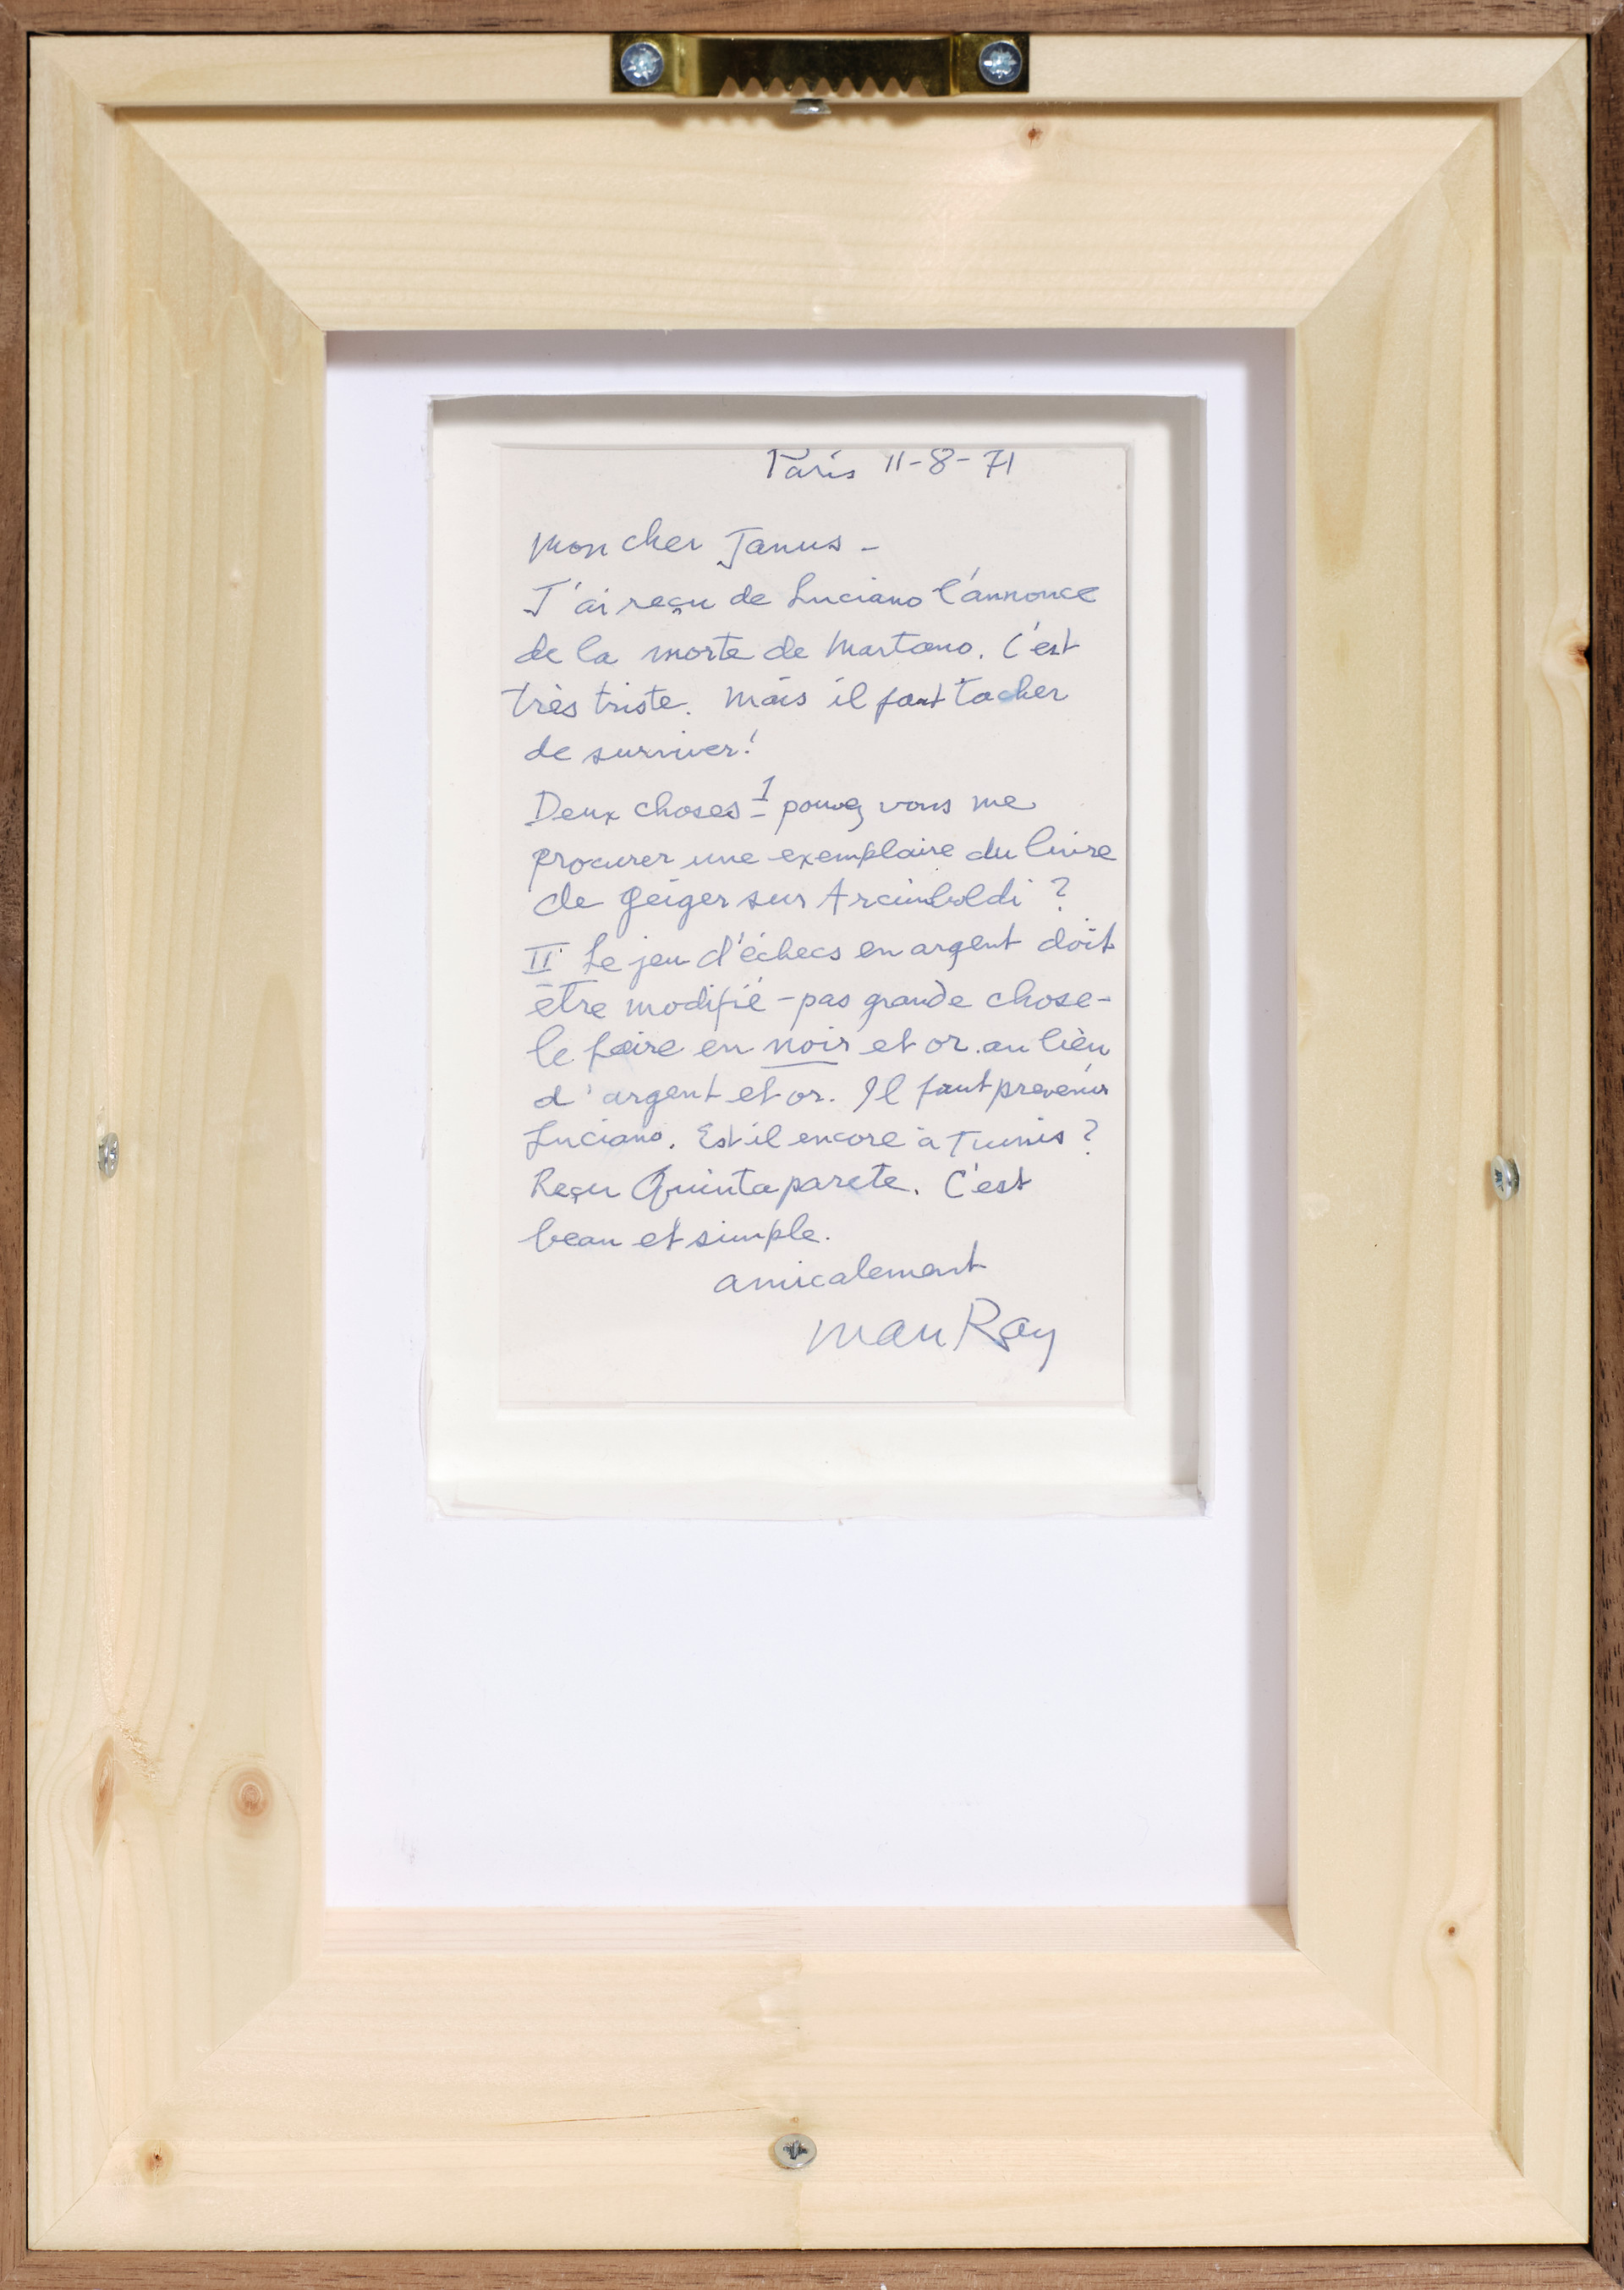 Paris 11-8-71
Mon cher Janus -
J'ai reçu de Luciano l'annonce
de la morte de Martano. C'est
très triste. Mais il faut tacher
de surviver!
Deux choses - 1 pouvez vous me
procurer une exemplaire du livre
de Geiger sur Arcimboldi ?
II Le jeu d'échecs en argent doit
être modifié - pas grande chose -
le faire en noir et or au lieu
d'argent et or. Il faut prevenir
Luciano. Est il encore à Tunis ?
Reçu Quinta parete. C'est
beau et simple.
amicalement
Man Ray